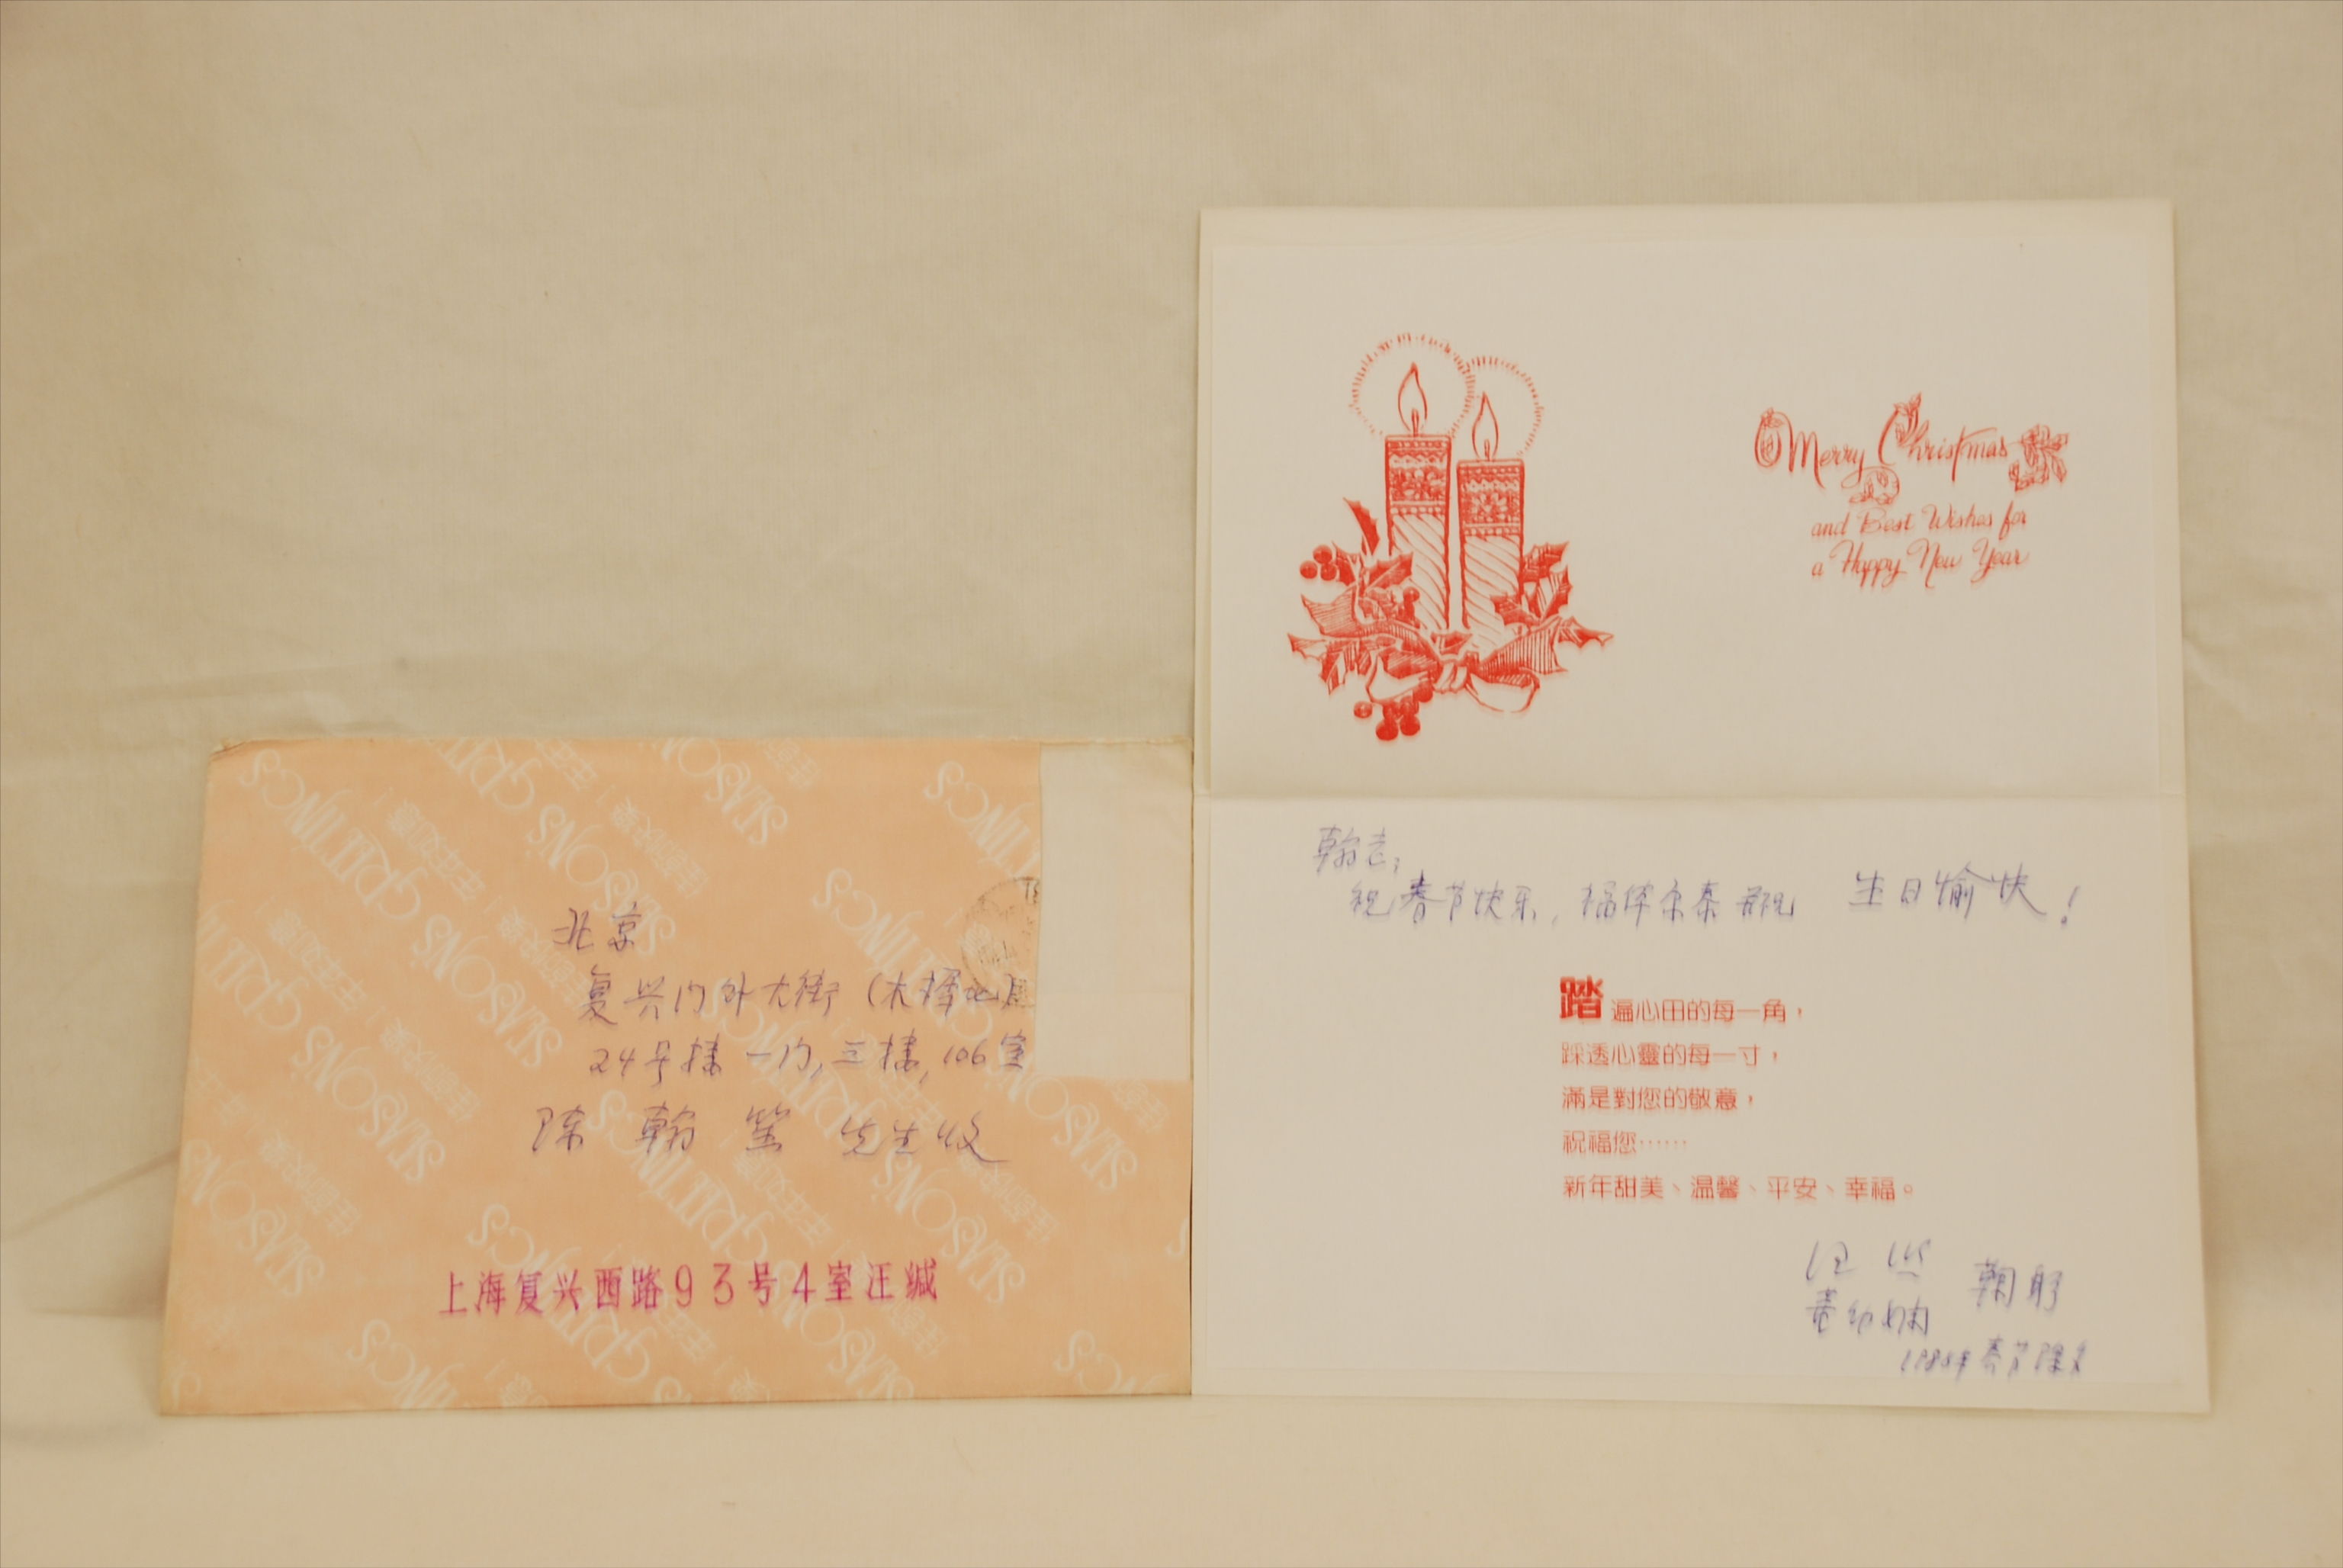 北京
复兴门外大街（木樨地
24号楼一门,三楼,106室
陈翰笙 先生收
上海复兴西路93号4室汪缄
SEASONS GREETINGS
佳節快樂！年年如意！
Merry Christmas
and Best Wishes for
a Happy New Year
翰老：
祝春节快乐，福体康泰 并祝 生日愉快！
踏遍心田的每一角，
踩透心靈的每一寸，
滿是對您的敬意，
祝福您……
新年甜美、温馨、平安、幸福。
汪熙
董幼娴 鞠躬
春节除夕